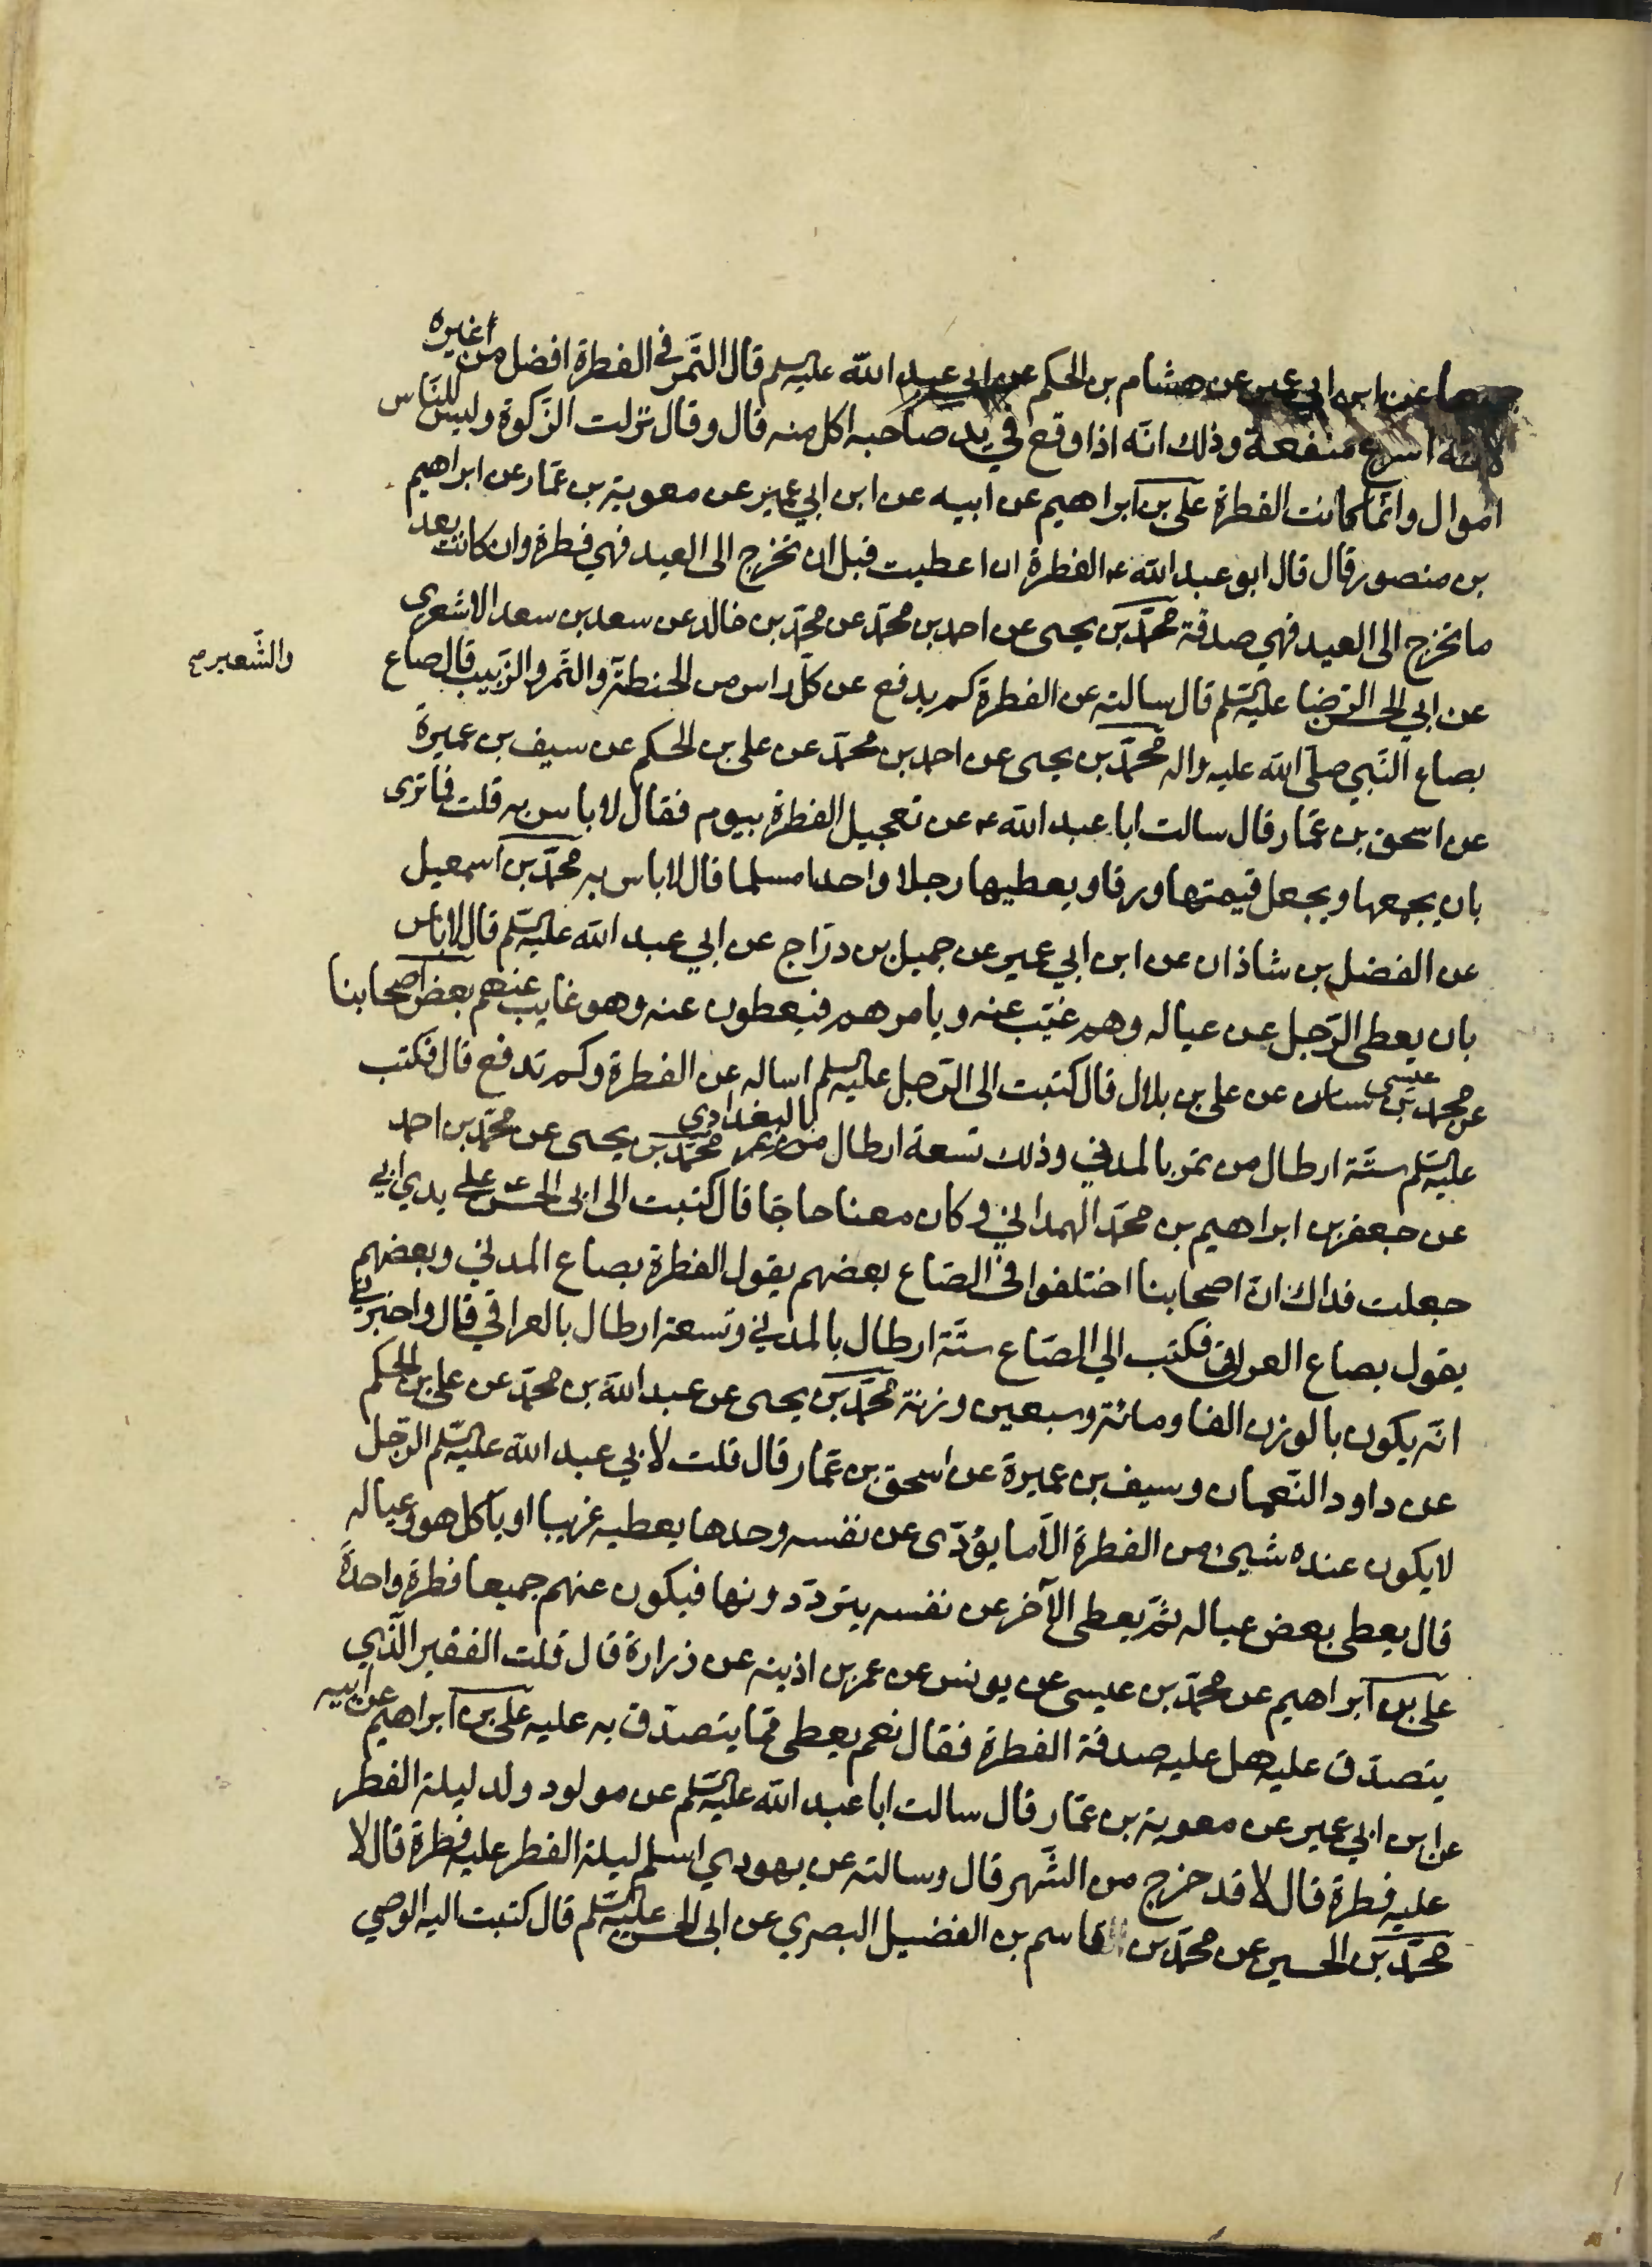 جميعا عن ابن ابي عمير عن هشام بن الحكم عن ابي عبد الله عليه السلم قال التّمر في الفطرة افضل من غيره
لانّه اسرع منفعة وذلك انّه اذا وقع في يد صاحبه اكل منه قال وقال نزلت الزّكوة وليس للنّاس
اموال وانّما كانت الفطرة علي بن ابراهيم عن ابيه عن ابن ابي عمير عن معوية بن عمّار عن ابراهيم
بن منصور قال قال ابو عبد الله ع الفطرة ان اعطيت قبل ان تخرج الى العيد فهي فطرة وان كانت بعد
ما تخرج الى العيد فهي صدقة محمّد بن يحيى عن احمد بن محمّد عن محمّد بن خالد عن سعد بن سعد الاشعرى
عن ابي الحسن الرّضا عليه السّلم قال سالته عن الفطرة كم يدفع عن كلّ راس من الحنطة والتّمر والزّبيب قال صاع
والشّعير صح
بصاع النّبي صلّى الله عليه واله محمّد بن يحيى عن احمد بن محمّد عن على بن الحكم عن سيف بن عميرة
عن اسحق بن عمّار قال سالت ابا عبد الله ع عن تعجيل الفطرة بيوم فقال لا باس به قلت فما ترى
بان يجمعها ويجعل قيمتها ورقا ويعطيها رجلا واحدا مسلما قال لا باس به محمّد بن اسمعيل
عن الفضل بن شاذان عن ابن ابي عمير عن جميل بن درّاج عن ابي عبد الله عليه السّلم قال لا باس
بان يعطى الرّجل عن عياله وهم غيّب عنه ويامرهم فيعطون عنه وهو غايب عنهم بعض اصحابنا
عن محمّد بن عيسى عن على بن بلال قال كتبت الى الرّجل عليه السلم اساله عن الفطرة وكم تدفع قال فكتب
عليه السّلم ستّة ارطال من تمر بالمدني وذلك تسعة ارطال بالبغدادي محمّد بن يحيى عن محمّد بن احمد
عن جعفر بن ابراهيم بن محمّد الهمداني وكان معنا حاجّا قال كتبت الى ابى الحسن ع على يدي ابي
جعلت فداك انّ اصحابنا اختلفوا في الصّاع بعضهم يقول الفطرة بصاع المدني وبعضهم
يقول بصاع العراقي فكتب الي الصّاع ستّة ارطال بالمدني وتسعة ارطال بالعراقي قال واخبرني
انّه يكون بالوزن الفا ومائة وسبعين وزنة محمّد بن يحيى عن عبد الله بن محمّد عن على بن الحكم
عن داود النّعمان وسيف بن عميرة عن اسحق بن عمّار قال قلت لابي عبد الله عليه السّلم الرّجل
لا يكون عنده شيئ من الفطرة الّا ما يؤدّى عن نفسه وحدها يعطيه غريبا او ياكل هو وعياله
قال يعطى بعض عياله ثمّ يعطى الآخر عن نفسه يتردّدونها فيكون عنهم جميعا فطرة واحدةً
علي بن ابراهيم عن محمّد بن عيسى عن يونس عن عمر بن اذينه عن زرارة قال قلت الفقير الّذي
يتصدّق عليه هل عليه صدقة الفطرة فقال نعم يعطى ممّا يتصدّق به عليه علي بن ابراهيم عن ابيه
عن ابن ابي عمير عن معوية بن عمّار قال سالت ابا عبد الله عليه السّلم عن مولود ولد ليلة الفطر
عليه فطرة قال لا قد خرج من الشّهر قال وسالته عن يهودي اسلم ليلة الفطر عليه فطرة قال لا
محمّد بن الحسين عن محمّد بن القاسم بن الفضيل البصري عن ابى الحسن عليه السّلم قال كتبت اليه الوصي